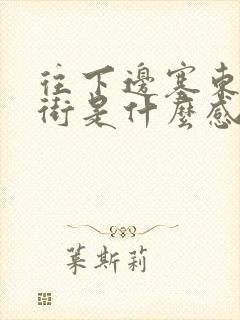 往下邊塞東
街是什麼感
莱斯莉